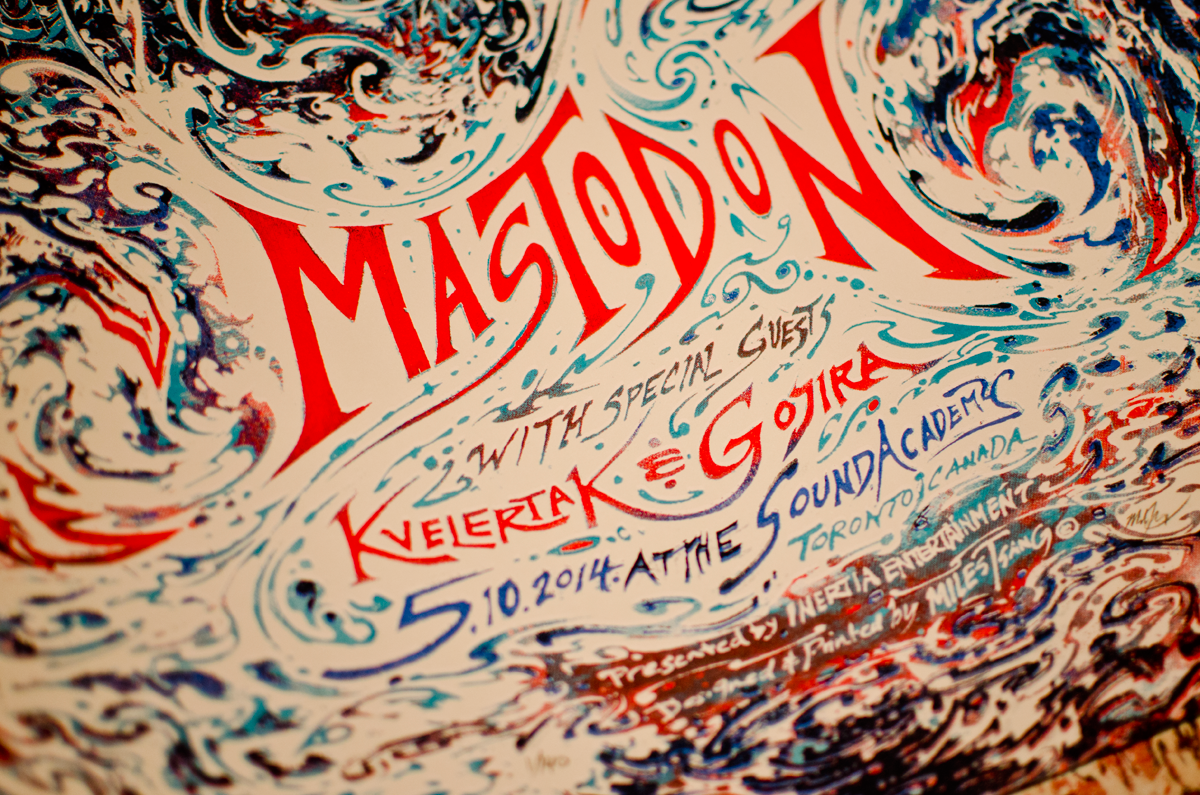 MASTODON
WITH SPECIAL GUESTS
KVELERTAK & GOJIRA
5.10.2014. AT THE SOUND ACADEMY
TORONTO, CANADA
Presented by INERTIA ENTERTAINMENT
Designed & Printed by MILES TSANG ©